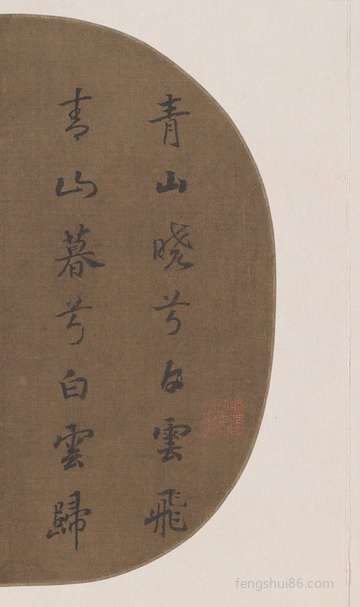 青山曉兮白雲飛
青山暮兮白雲歸
fengshui86.com